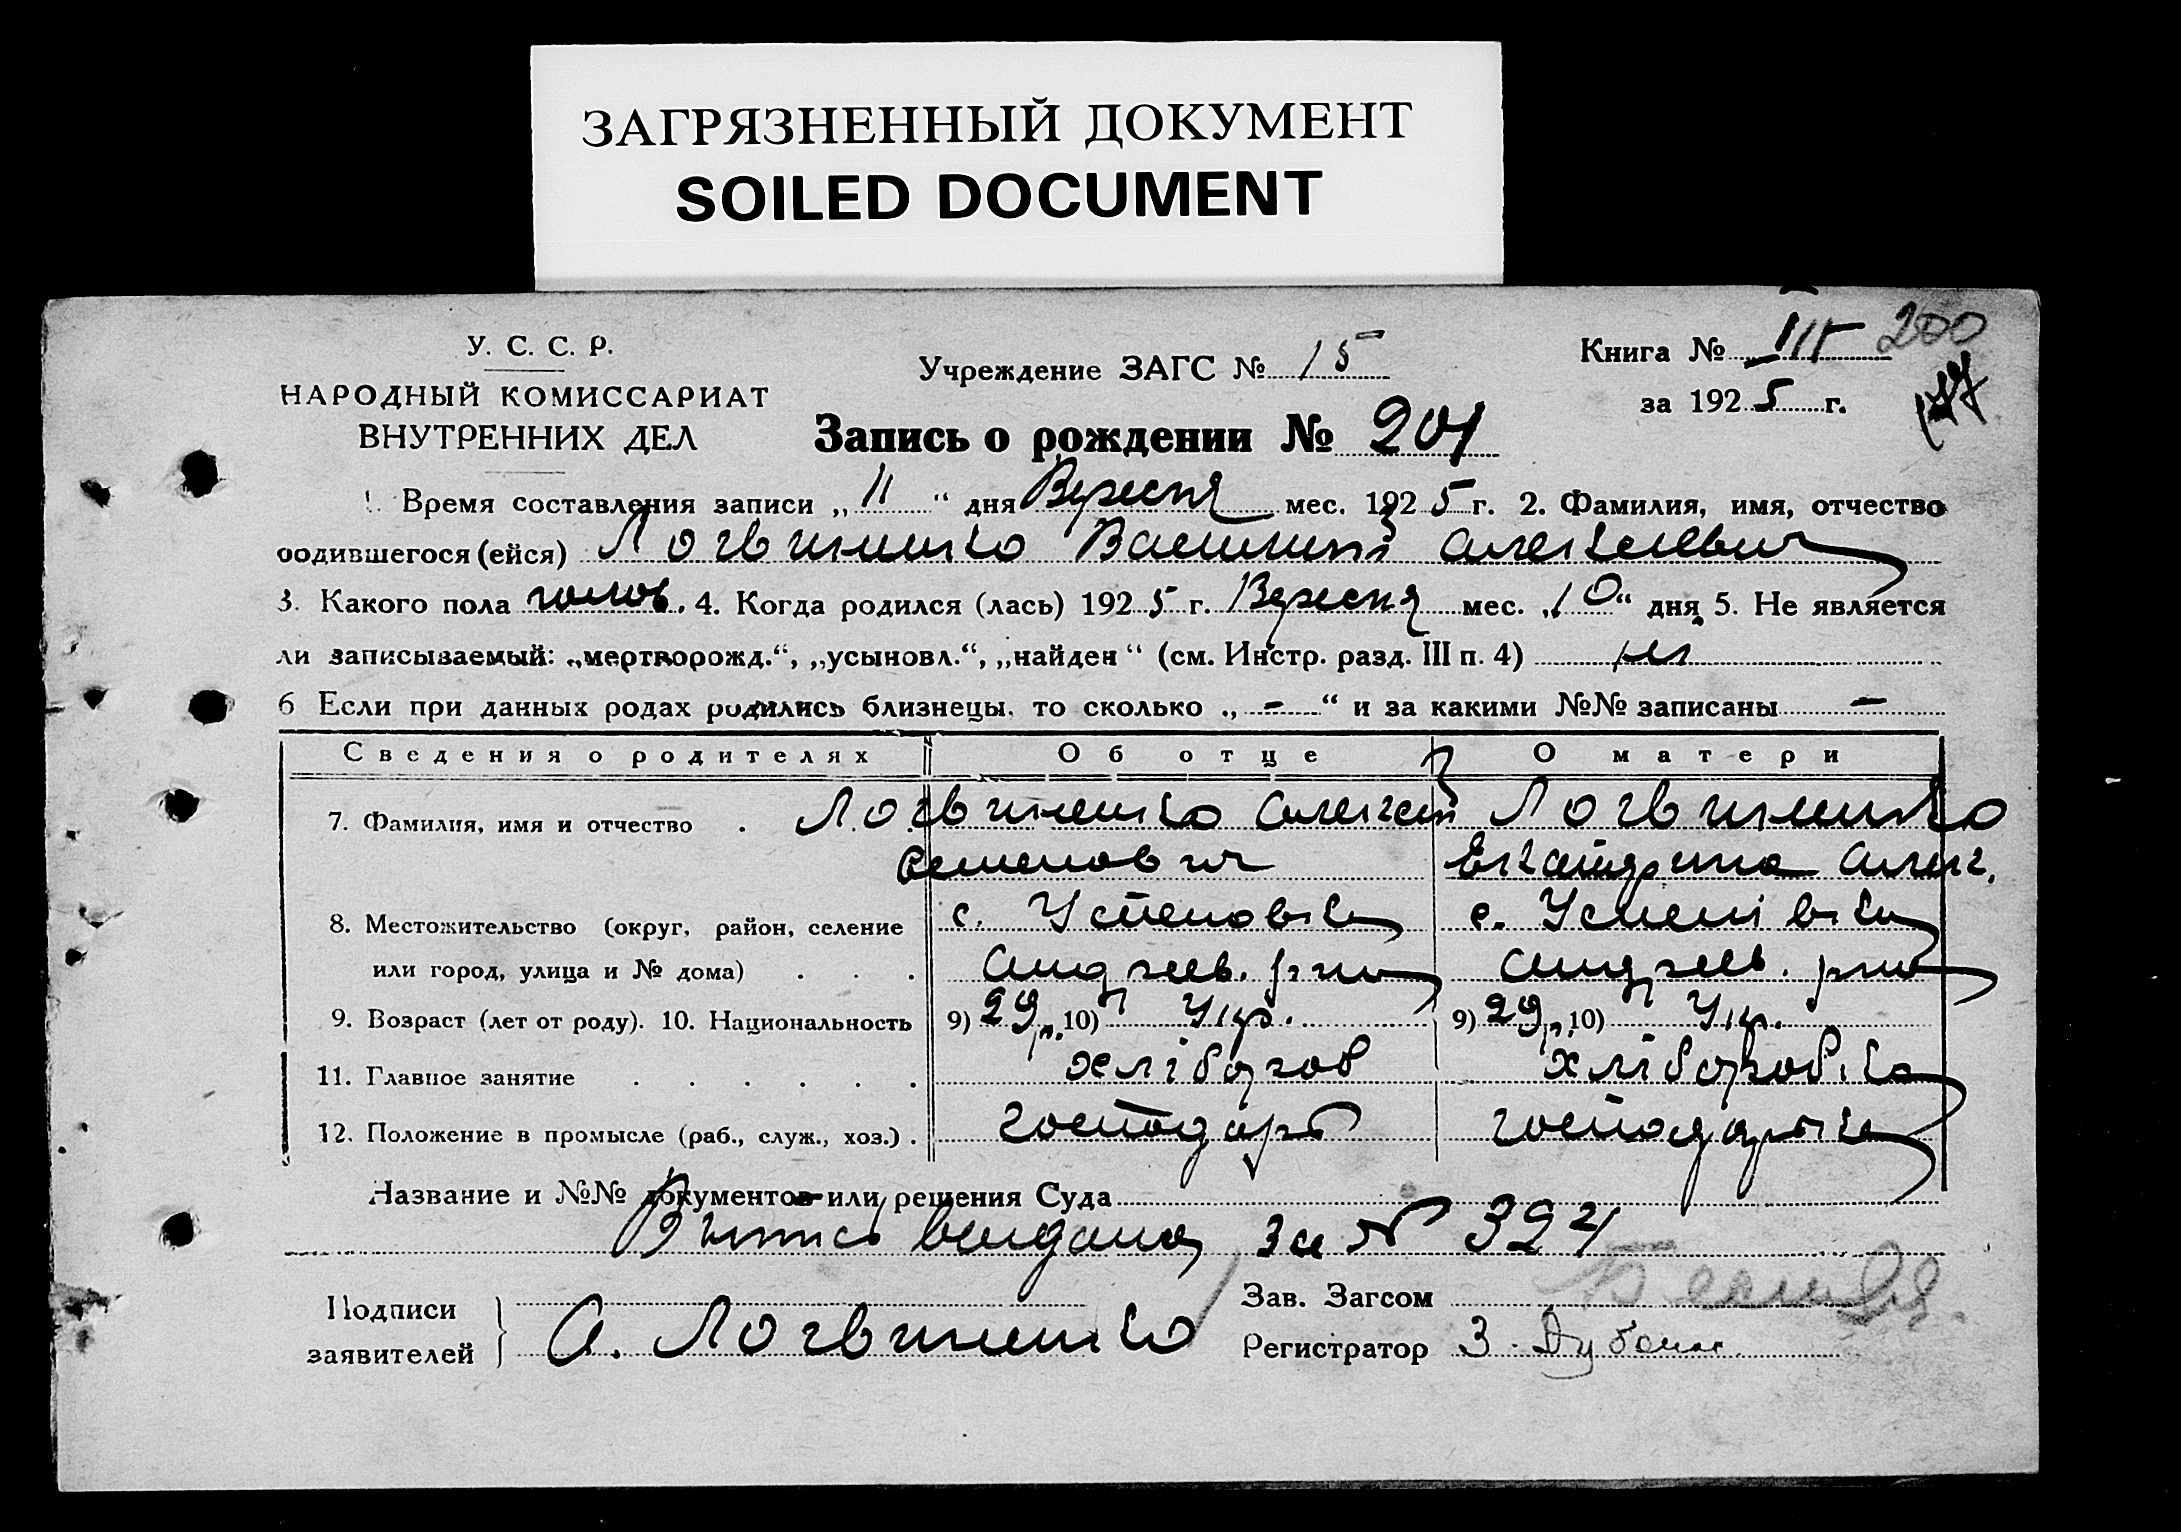 ЗАГРЯЗНЕННЫЙ ДОКУМЕНТ
SOILED DOCUMENT
У. С. С. Р.
НАРОДНЫЙ КОМИССАРИАТ
ВНУТРЕННИХ ДЕЛ
Учреждение ЗАГС № 15
Книга № III 200
за 1925 г. 177
Запись о рождении № 201
1. Время составления записи „11“ дня Вересня мес. 1925 г. 2. Фамилия, имя, отчество
родившегося (ейся) Логвиненко Василий Алексеевич
3. Какого пола чолов. 4. Когда родился (лась) 1925 г. Вересня мес. „10“ дня 5. Не является
ли записываемый: „мертворожд.“, „усыновл.“, „найден“ (см. Инстр. разд. III п. 4) ні
6 Если при данных родах родились близнецы, то сколько „-“ и за какими №№ записаны -
Сведения о родителях Об отце О матери
7. Фамилия, имя и отчество . Логвиненко Алексей Логвиненко
Семенович Екатерина Алек.
8. Местожительство (округ, район, селение с. Успеновка с. Успенівка
или город, улица и № дома) . . . Андреев. р-ну Андреев. р-ну
9. Возраст (лет от роду). 10. Национальность 9) 29 р. 10) Укр. 9) 29 р. 10) Укр.
11. Главное занятие . . . . . . хлібороб хліборобка
12. Положение в промысле (раб., служ., хоз.) . господарь господарька
Название и №№ документов или решения Суда
Выпись выдана за № 394
Подписи
заявителей
А. Логвиненко
Зав. Загсом
Регистратор З.